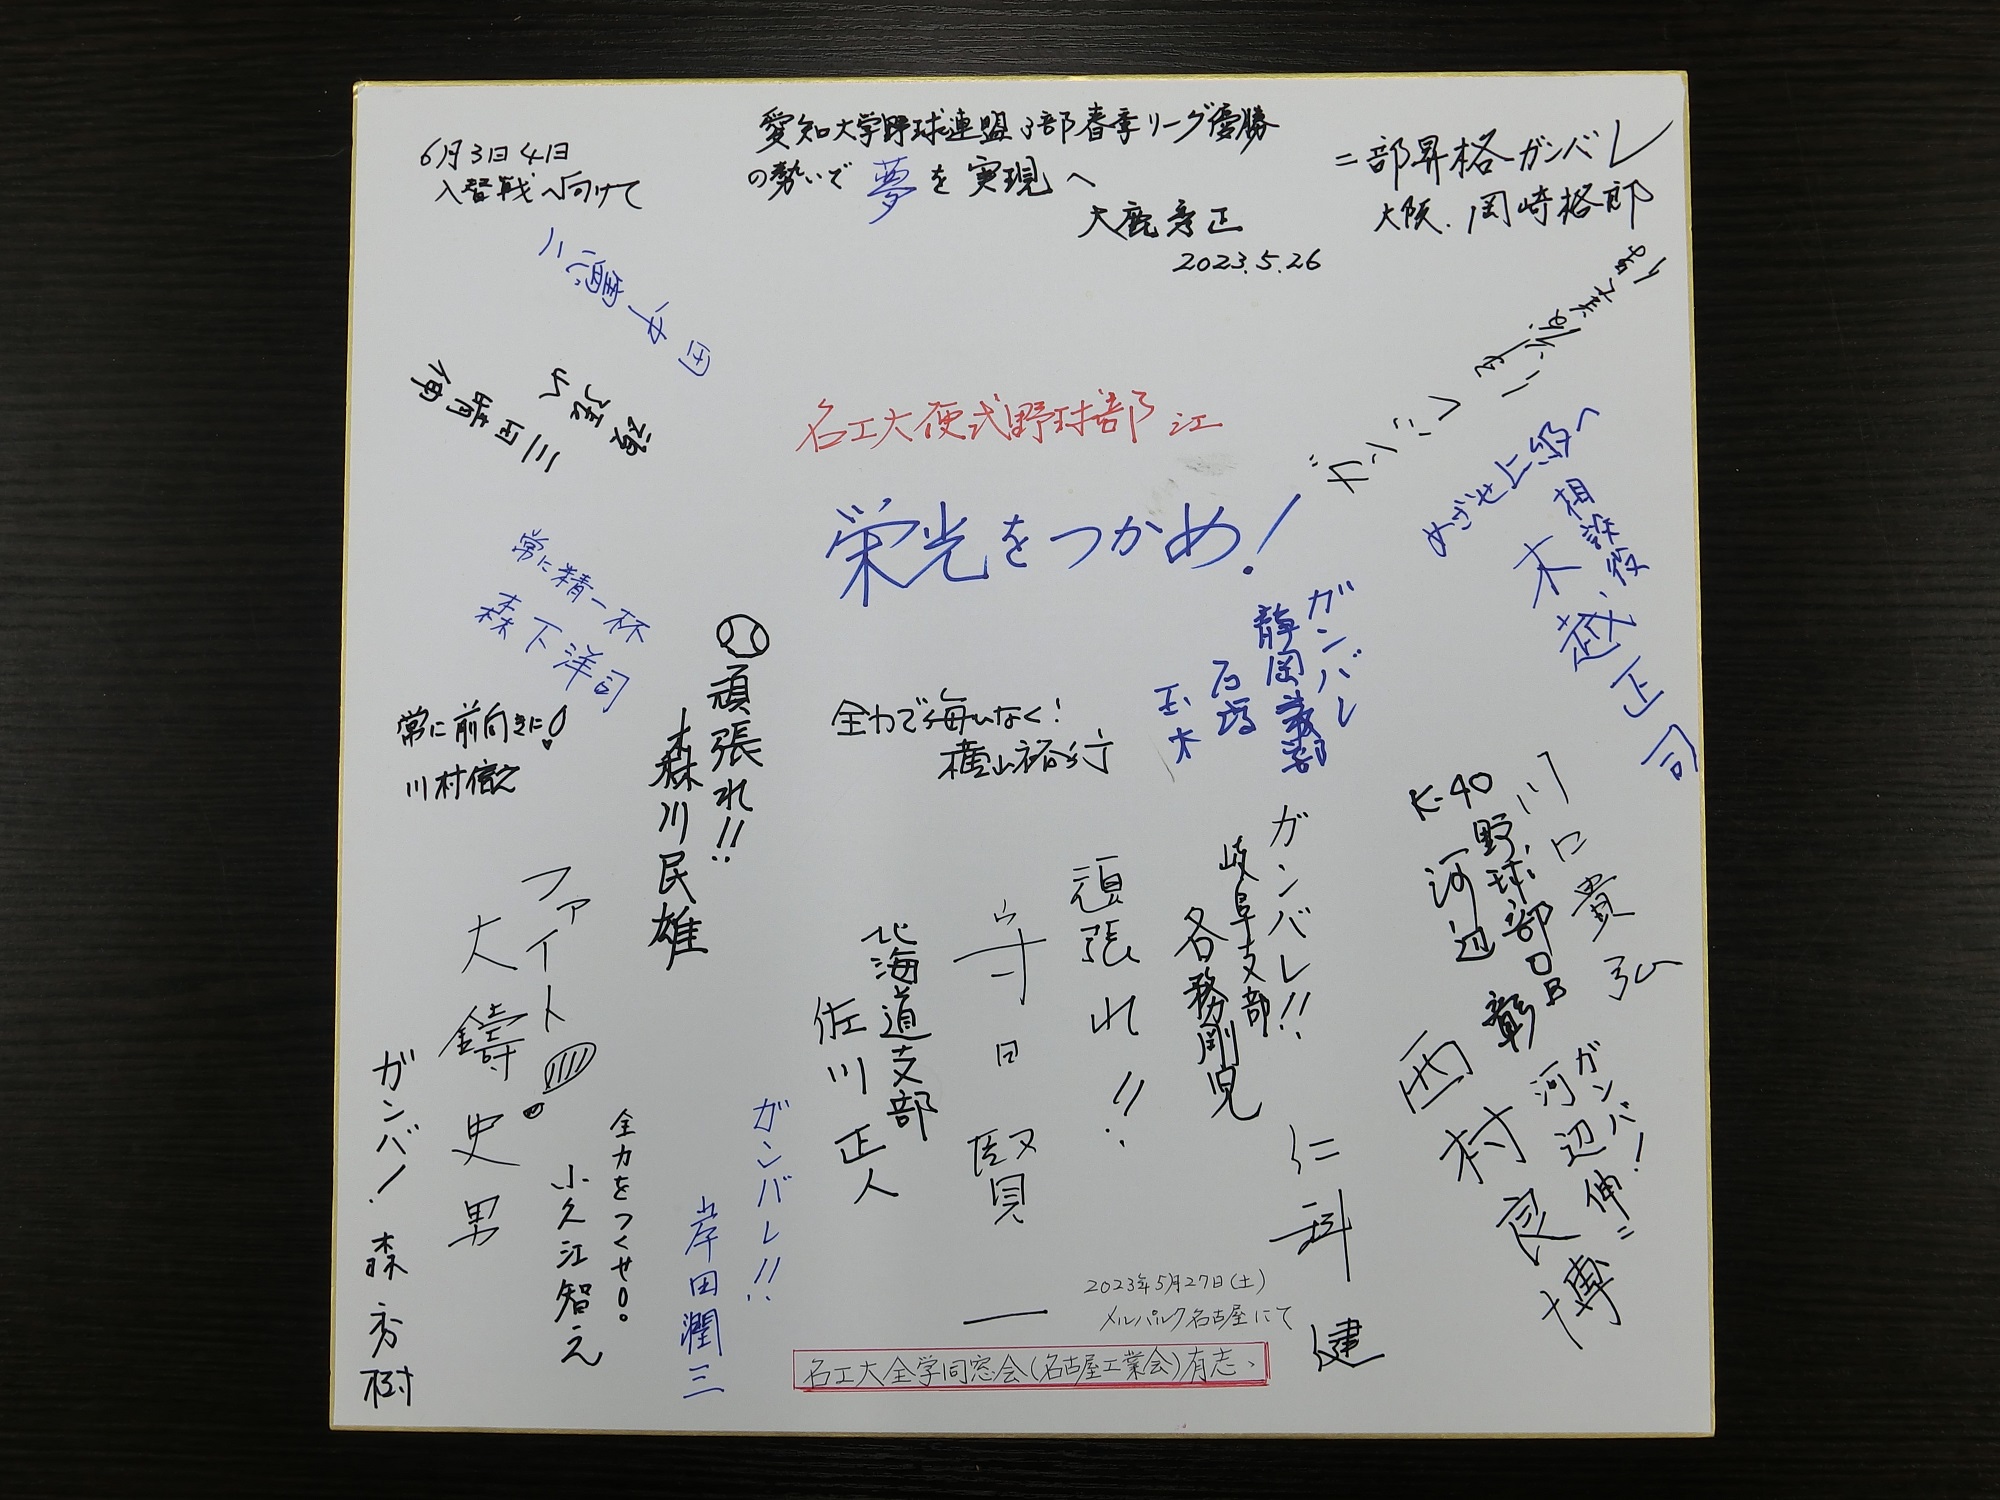 6月3日4日
入替戦へ向けて
愛知大学野球連盟3部春季リーグ優勝
の勢いで夢を実現へ
大鹿秀正
2023.5.26
二部昇格ガンバレ
大阪.岡崎格郎
ガンバレ
三田晴伸
名工大硬式野球部江
栄光をつかめ!
めざせ上級へ
相談役
木越正司
常に精一杯
森下洋司
常に前向きに!
川村信之
頑張れ!!
森川民雄
全力で悔いなく!
横山裕行
ガンバレ
静岡支部
石塚
玉木
K-40
野球部OB
河辺
彰
川口貴弘
ガンバ!
河辺伸二
西村良博
ガンバレ!!
岐阜支部
各務剛児
仁科健
頑張れ!!
守田賢一
北海道支部
佐川正人
ファイト!
大鑄史男
ガンバ!
森秀樹
全力をつくせ!。
小久江智え
ガンバレ!!
岸田潤三
2023年5月27日(土)
メルパルク名古屋にて
名工大全学同窓会(名古屋工業会)有志、